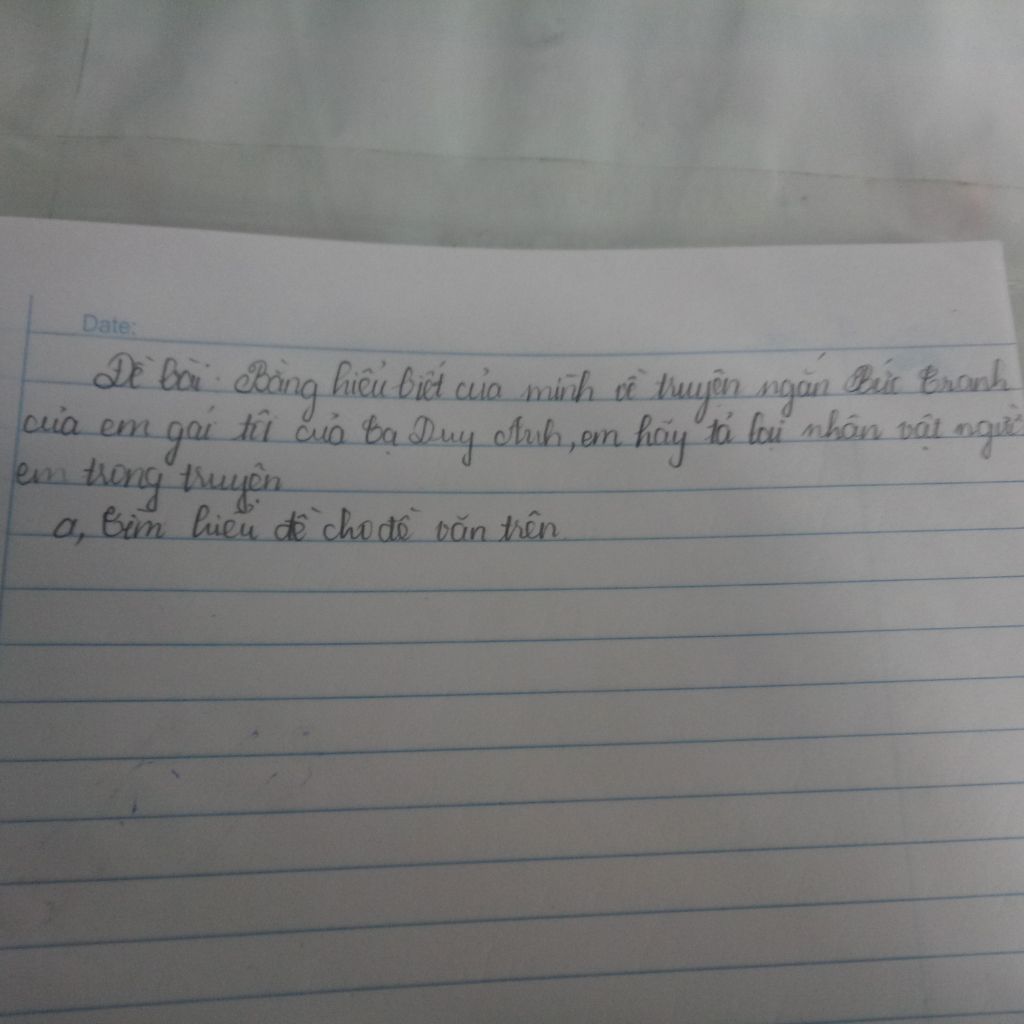 Date:
Đề bài: Bằng hiểu biết của mình về truyện ngắn Bức tranh
của em gái tôi của Tạ Duy Anh, em hãy tả lại nhân vật người
em trong truyện
a, Tìm hiểu đề cho đề văn trên